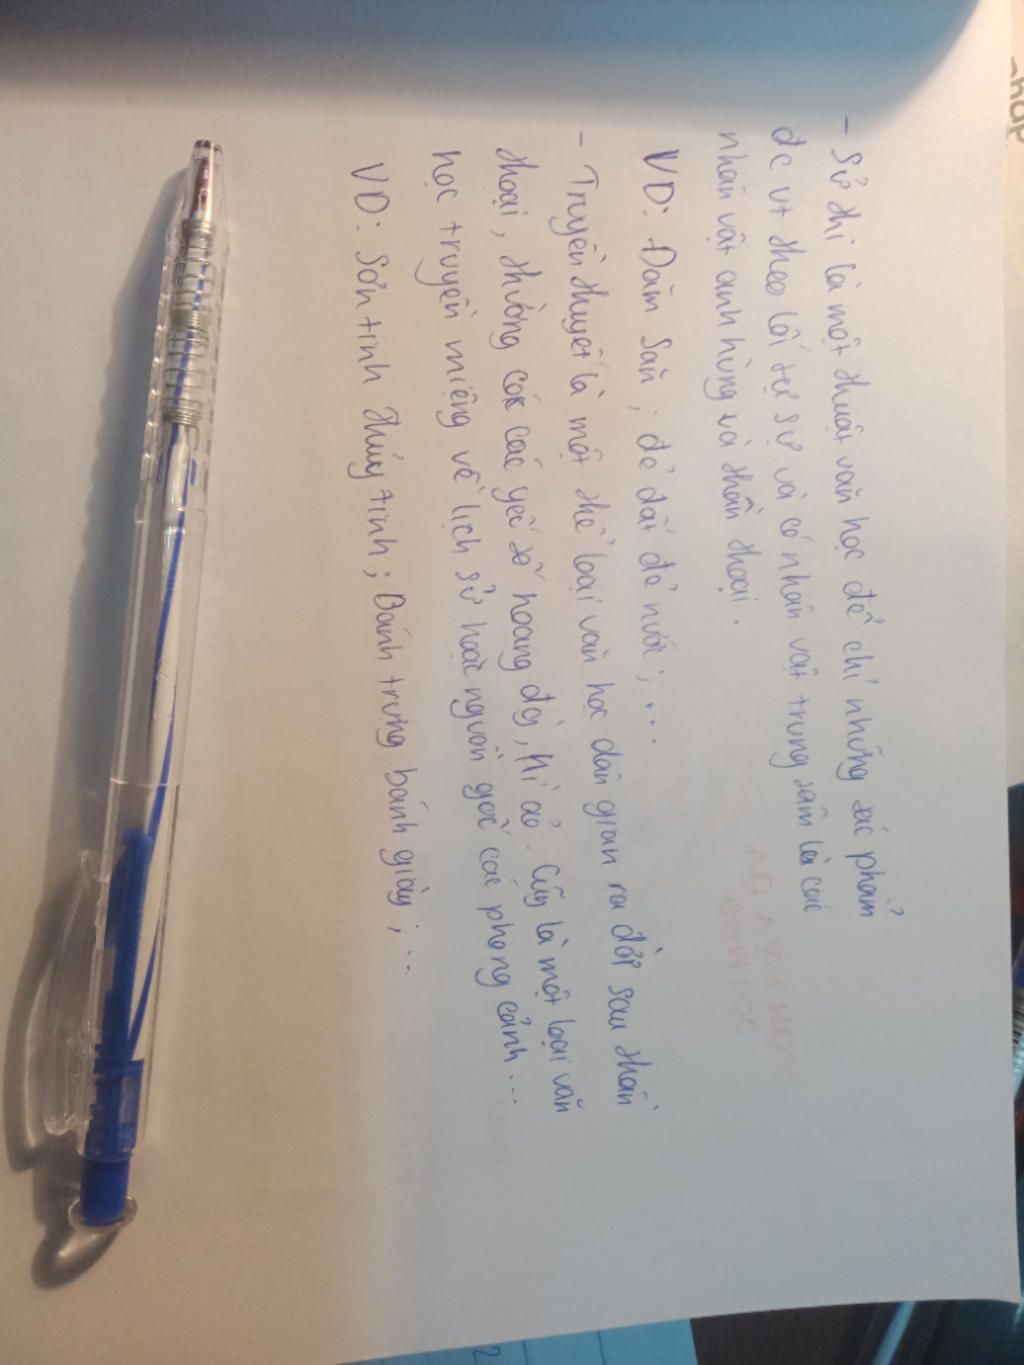 - Sử thi là một thuật văn học để chỉ những tác phẩm
đc vt theo lối tự sự và có nhân vật trung tâm là các
nhân vật anh hùng và thần thoại.
VD: Đăm Săn; đẻ đất đẻ nước; ...
- Truyền thuyết là một thể loại văn học dân gian ra đời sau thần
thoại, thường có các yếu tố hoang đg, kì ảo. Cũg là một loại văn
học truyền miệng về lịch sử hoặc nguồn gốc các phong cảnh...
VD: Sơn tinh thủy tinh; Bánh trưng bánh giày; ...